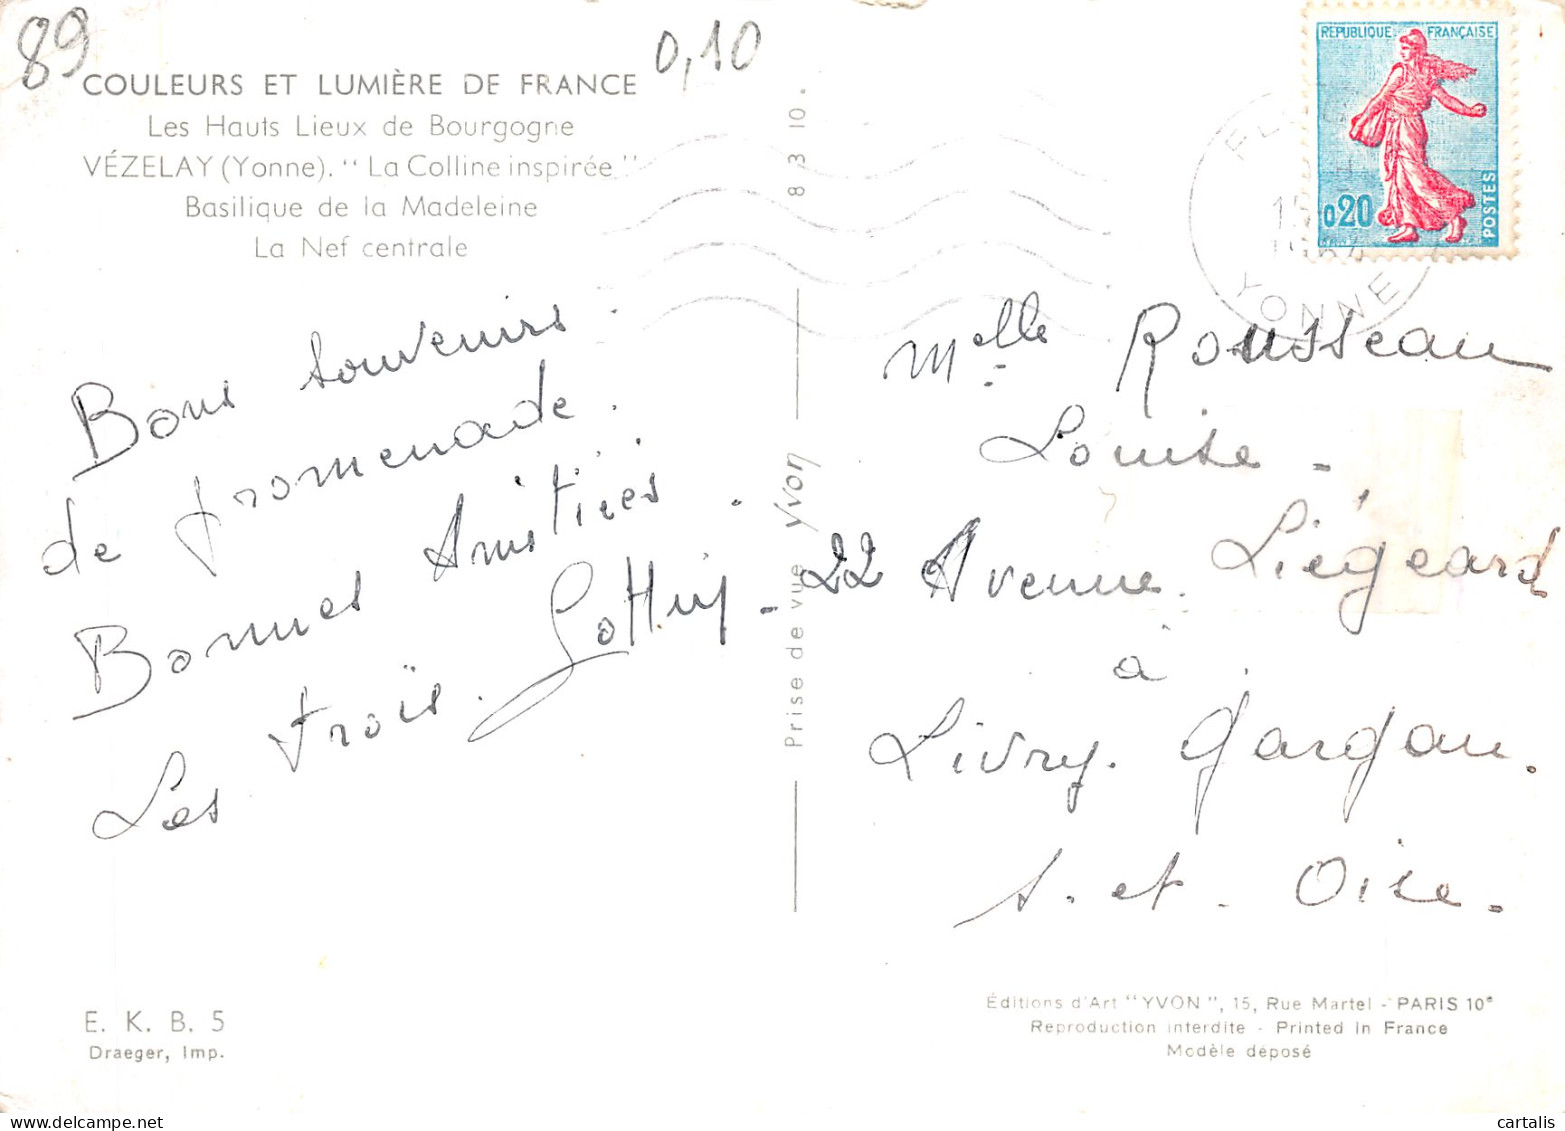 89
0,10
COULEURS ET LUMIÈRE DE FRANCE
Les Hauts Lieux de Bourgogne
VÉZELAY (Yonne). "La Colline inspirée"
Basilique de la Madeleine
La Nef centrale
Bons souvenirs.
de promenade.
Bonnes Amitiés.
Les trois.
E. K. B. 5
Draeger, Imp.
8 3 10.
Prise de vue Yvon
REPUBLIQUE FRANÇAISE
0,20
POSTES
YONNE
Melle Rousseau
Louise -
22 Avenue. Liégeard
à
Livry. Gargan.
S. et. Oise.
Éditions d'Art "YVON", 15, Rue Martel - PARIS 10e
Reproduction interdite - Printed in France
Modèle déposé
cartalis